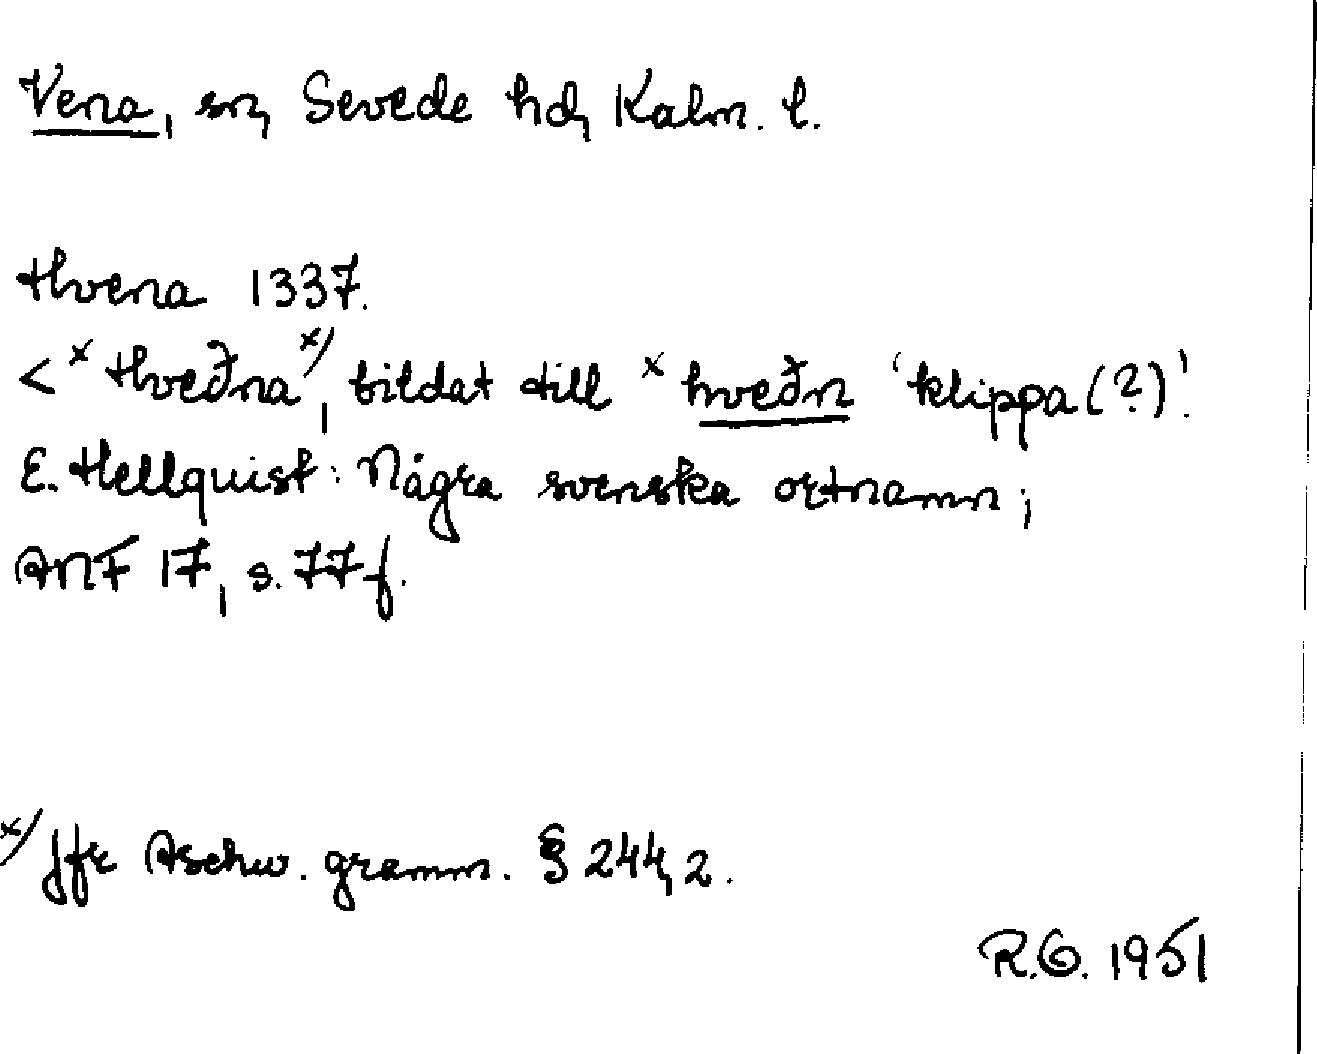 Vena, sn, Sevede hd, Kalm. l.
Hvena 1337.
< x Hveðna x), bildat till x hveðn 'klippa(?)'.
E. Hellquist: Några svenska ortnamn;
ANF 17, s. 77 f.
x) Jfr Aschw. gramm. § 244, 2.
R.G. 1951